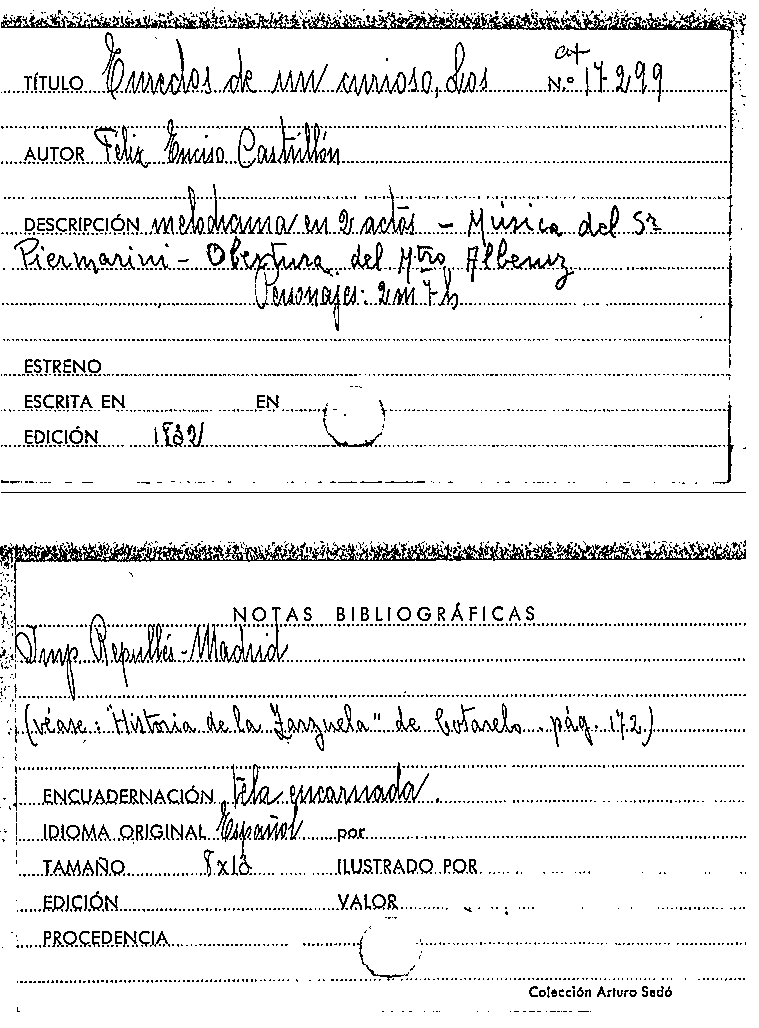 cat
TÍTULO Enredos de un curioso, Los N.º 17.299
AUTOR Félix Enciso Castrillón
DESCRIPCIÓN melodrama en 2 actos - Música del Sr
Piermarini - Obertura del Mtro Albeniz
Personajes: 2 m 7 h
ESTRENO
ESCRITA EN EN
EDICIÓN 1832
NOTAS BIBLIOGRÁFICAS
Imp Repullés - Madrid
(véase: "Historia de la Zarzuela" de Cotarelo. pág. 172)
ENCUADERNACIÓN tela encarnada.
IDIOMA ORIGINAL Español por
TAMAÑO 8x13 ILUSTRADO POR
EDICIÓN VALOR
PROCEDENCIA
Colección Arturo Sedó